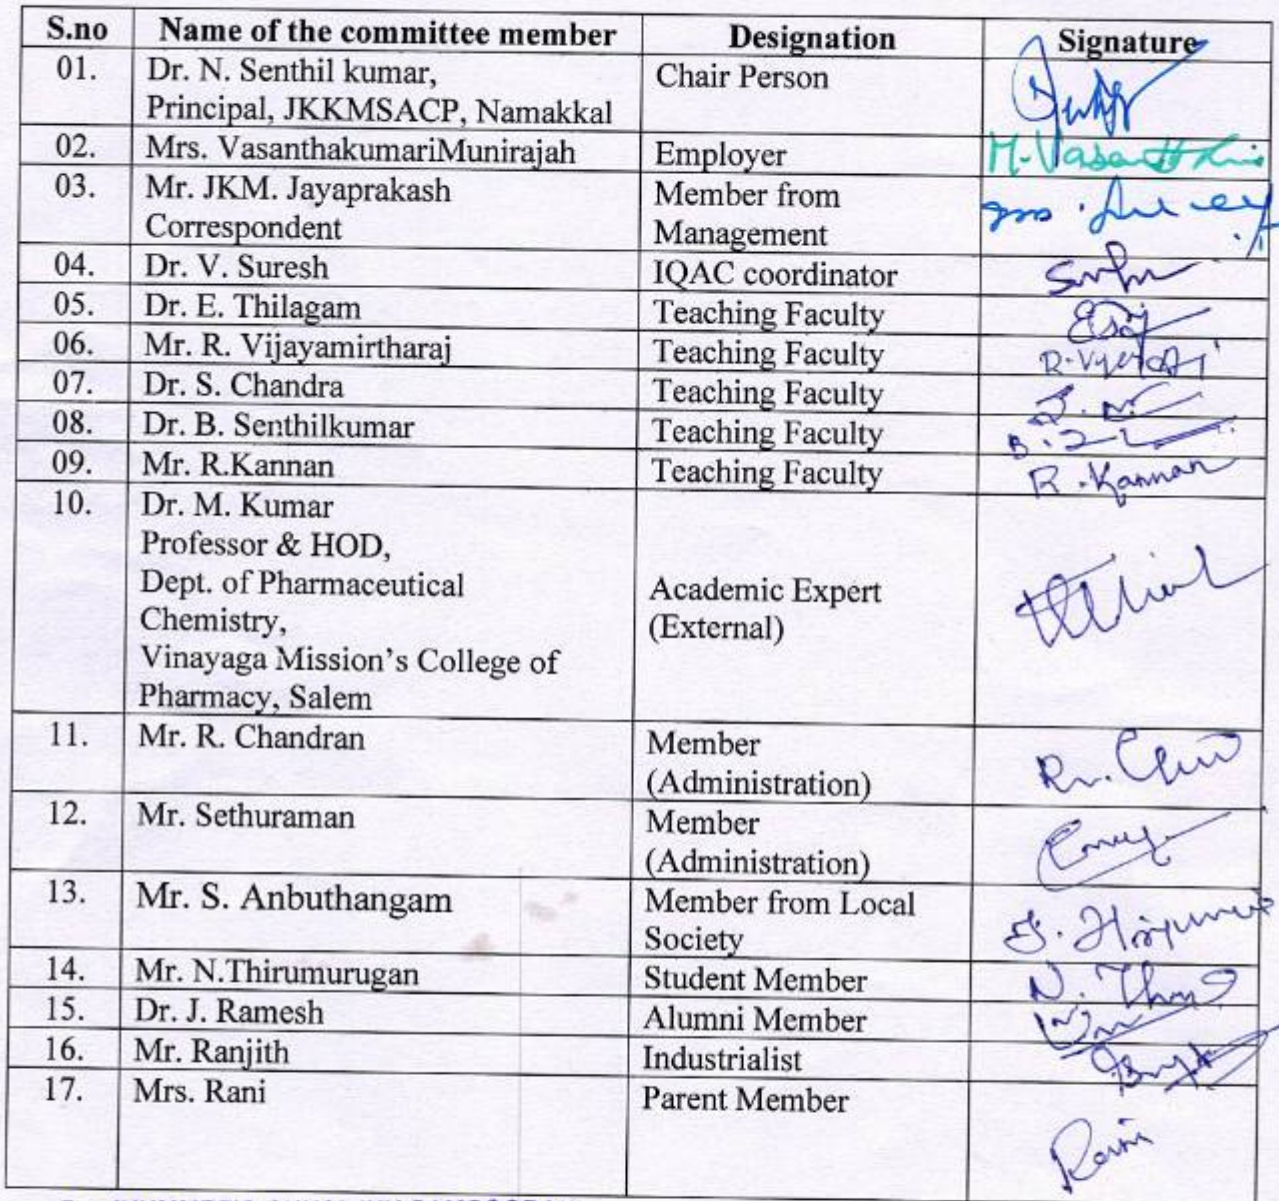 S.no Name of the committee member Designation Signature
01. Dr. N. Senthil kumar, Chair Person
Principal, JKKMSACP, Namakkal
02. Mrs. VasanthakumariMunirajah Employer M. Vasantha
03. Mr. JKM. Jayaprakash Member from
Correspondent Management
04. Dr. V. Suresh IQAC coordinator
05. Dr. E. Thilagam Teaching Faculty
06. Mr. R. Vijayamirtharaj Teaching Faculty
07. Dr. S. Chandra Teaching Faculty
08. Dr. B. Senthilkumar Teaching Faculty
09. Mr. R.Kannan Teaching Faculty R. Kannan
10. Dr. M. Kumar
Professor & HOD,
Dept. of Pharmaceutical Academic Expert
Chemistry, (External)
Vinayaga Mission's College of
Pharmacy, Salem
11. Mr. R. Chandran Member
(Administration)
12. Mr. Sethuraman Member
(Administration)
13. Mr. S. Anbuthangam Member from Local
Society
14. Mr. N.Thirumurugan Student Member
15. Dr. J. Ramesh Alumni Member
16. Mr. Ranjith Industrialist
17. Mrs. Rani Parent Member
Rani